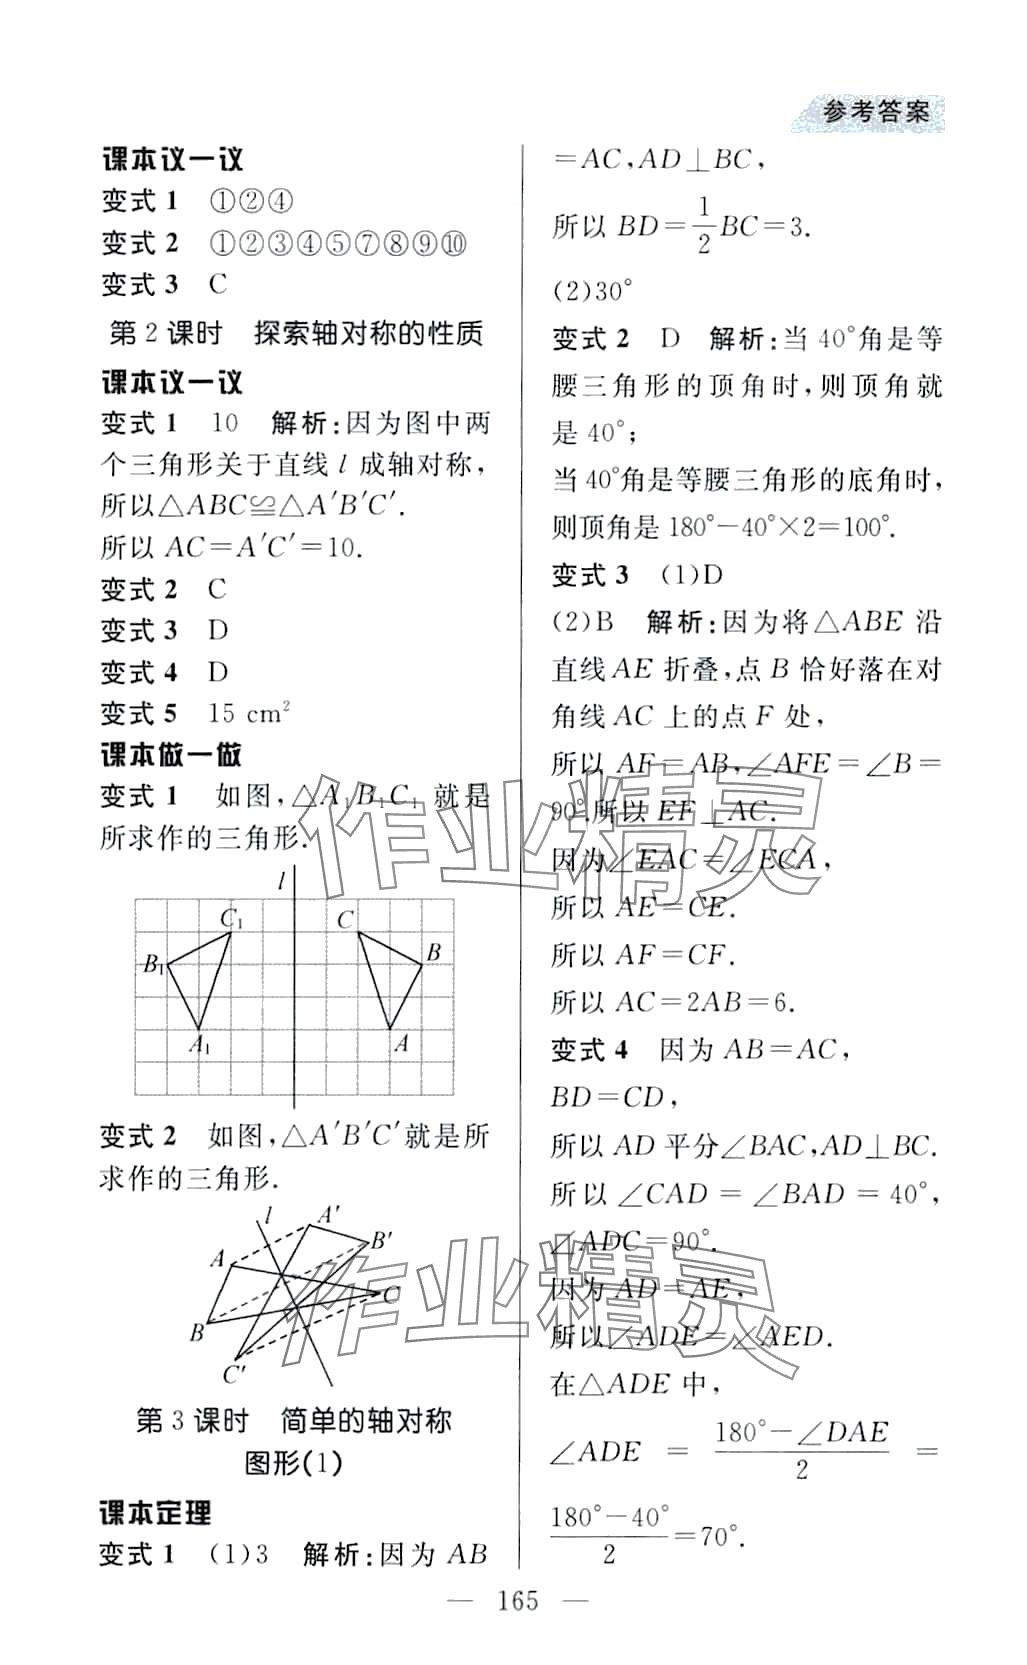 参考答案
课本议一议
变式 1 ①②④
变式 2 ①②③④⑤⑦⑧⑨⑩
变式 3 C
第 2 课时 探索轴对称的性质
课本议一议
变式 1 10 解析:因为图中两
个三角形关于直线 l 成轴对称,
所以△ABC≌△A′B′C′.
所以 AC=A′C′=10.
变式 2 C
变式 3 D
变式 4 D
变式 5 15 cm²
课本做一做
变式 1 如图,△A₁B₁C₁ 就是
所求作的三角形.
l
C₁ C
B₁ B
A₁ A
变式 2 如图,△A′B′C′就是所
求作的三角形.
l A′
B′
A
C
B
C′
第 3 课时 简单的轴对称
图形(1)
课本定理
变式 1 (1)3 解析:因为 AB
=AC,AD⊥BC,
所以 BD=1/2BC=3.
(2)30°
变式 2 D 解析:当 40°角是等
腰三角形的顶角时,则顶角就
是 40°;
当 40°角是等腰三角形的底角时,
则顶角是 180°-40°×2=100°.
变式 3 (1)D
(2)B 解析:因为将△ABE 沿
直线 AE 折叠,点 B 恰好落在对
角线 AC 上的点 F 处,
所以 AF=AB,∠AFE=∠B=
90°.所以 EF⊥AC.
因为∠EAC=∠ECA,
所以 AE=CE.
所以 AF=CF.
所以 AC=2AB=6.
变式 4 因为 AB=AC,
BD=CD,
所以 AD 平分∠BAC,AD⊥BC.
所以 ∠CAD=∠BAD=40°,
∠ADC=90°.
因为 AD=AE,
所以∠ADE=∠AED.
在△ADE 中,
∠ADE = (180°-∠DAE)/2 =
(180°-40°)/2=70°.
— 165 —
作业精灵
作业精灵